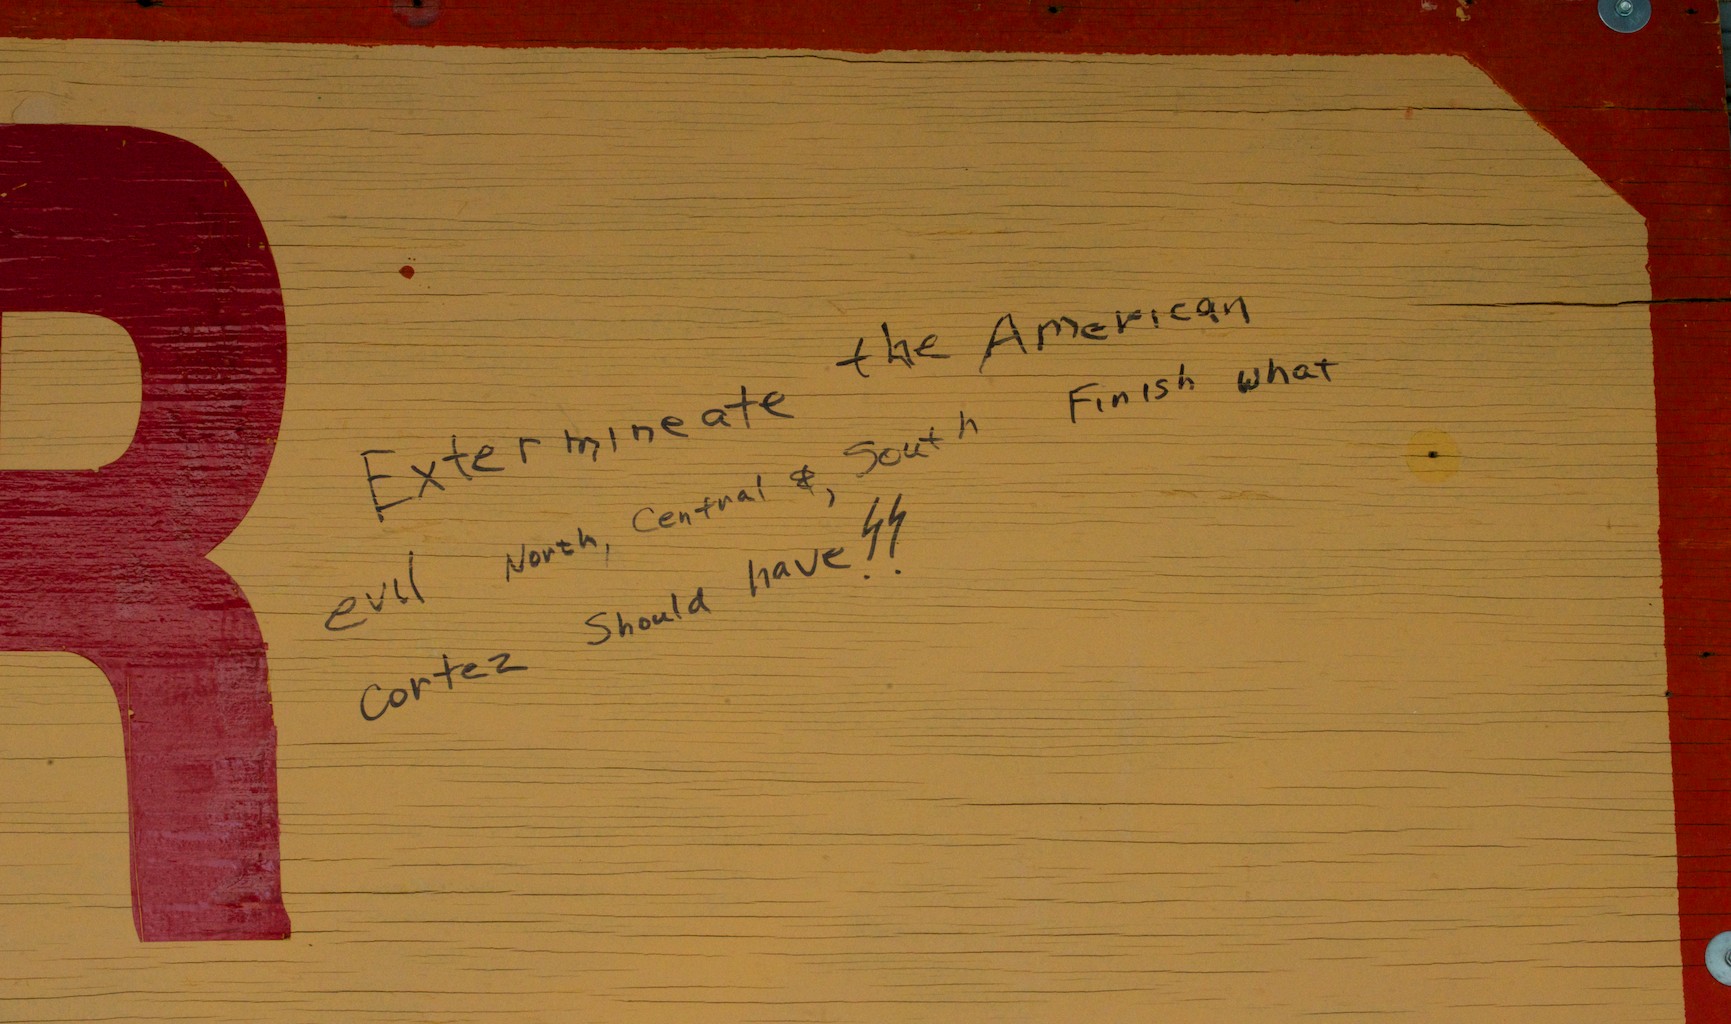 R
Extermineate the American
evil North, Central &, South Finish what
Cortez Should have !!